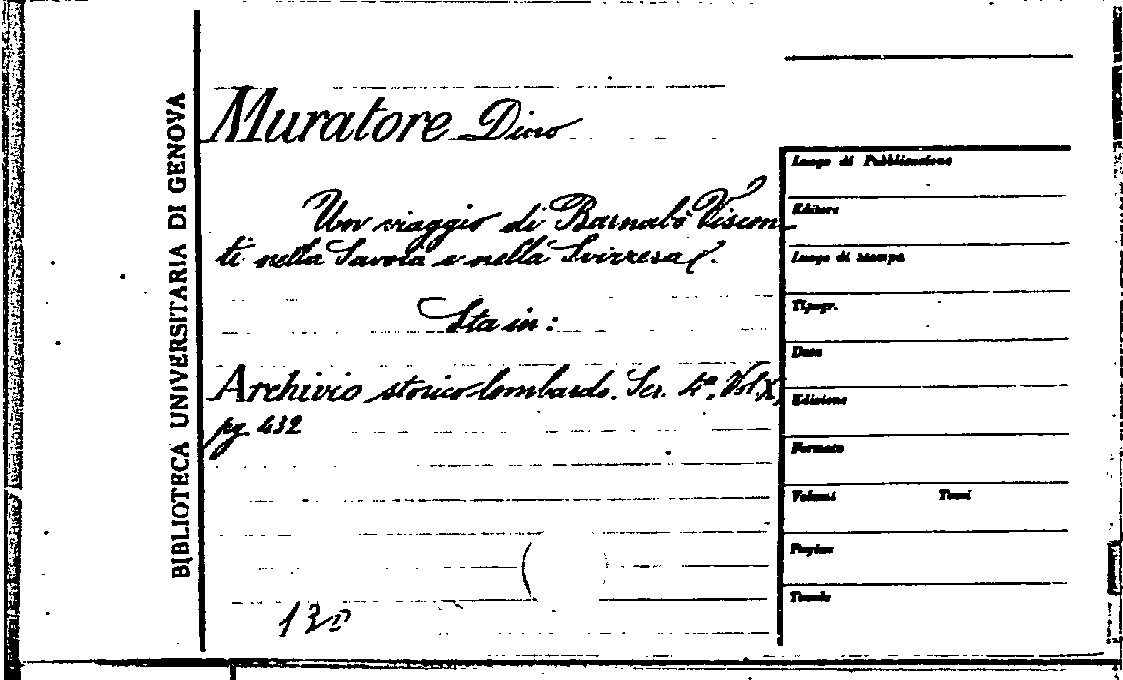 BIBLIOTECA UNIVERSITARIA DI GENOVA
Muratore Dino
Un viaggio di Barnabò Viscon-
ti nella Savoia e nella Svizzera
Sta in:
Archivio storico lombardo. Ser. 4ª, Vol. X,
pg. 432
13
Luogo di Pubblicazione
Editore
Luogo di stampa
Tipogr.
Data
Edizione
Formato
Volumi Tomi
Pagine
Tavole